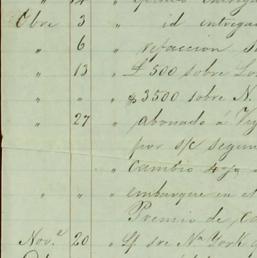 Obre 3 " id entrega
" 6 " refaccion
" 13 " £ 500 sobre Lo
" " " $ 3500 sobre N.
" 27 " abonado a
por s/c segun
" " " Cambio 4 %
" " " embarque en el
Premio de
Nov.e 20 " L/ sre N.a York